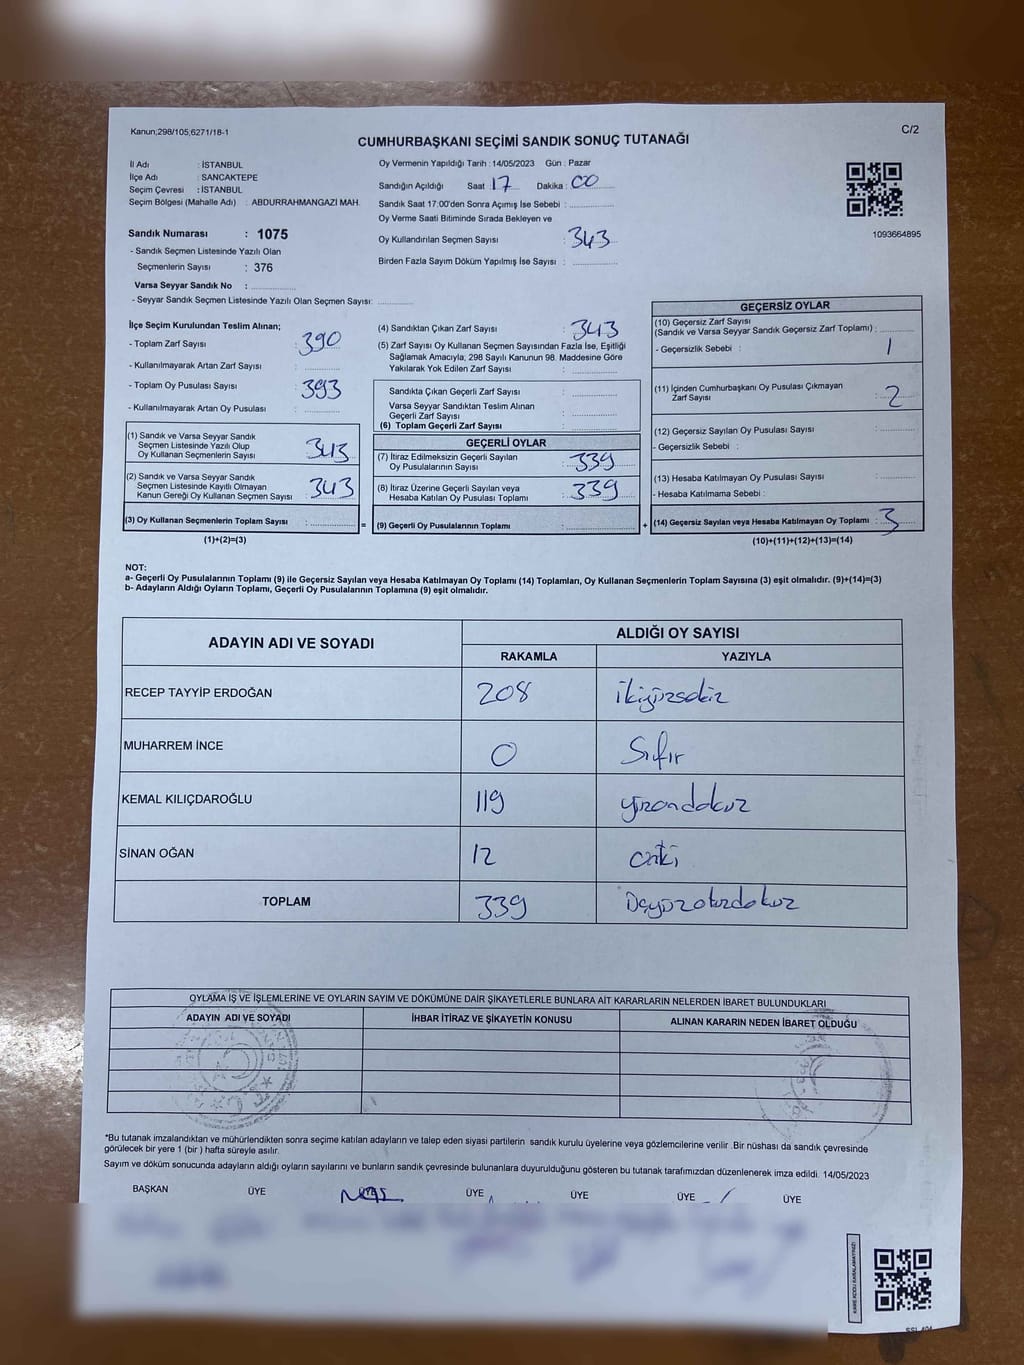 Kanun,298/105,6271/18-1
C/2
CUMHURBAŞKANI SEÇİMİ SANDIK SONUÇ TUTANAĞI
İl Adı : İSTANBUL
İlçe Adı : SANCAKTEPE
Seçim Çevresi : İSTANBUL
Seçim Bölgesi (Mahalle Adı) : ABDURRAHMANGAZİ MAH.
Sandık Numarası : 1075
- Sandık Seçmen Listesinde Yazılı Olan
Seçmenlerin Sayısı : 376
Varsa Seyyar Sandık No :
- Seyyar Sandık Seçmen Listesinde Yazılı Olan Seçmen Sayısı:
Oy Vermenin Yapıldığı Tarih : 14/05/2023 Gün : Pazar
Sandığın Açıldığı Saat : 17 Dakika : 00
Sandık Saat 17:00'den Sonra Açımış İse Sebebi :
Oy Verme Saati Bitiminde Sırada Bekleyen ve
Oy Kullandırılan Seçmen Sayısı : 343
Birden Fazla Sayım Döküm Yapılmış İse Sayısı :
1093664895
İlçe Seçim Kurulundan Teslim Alınan;
- Toplam Zarf Sayısı : 390
- Kullanılmayarak Artan Zarf Sayısı :
- Toplam Oy Pusulası Sayısı : 393
- Kullanılmayarak Artan Oy Pusulası :
(1) Sandık ve Varsa Seyyar Sandık
Seçmen Listesinde Yazılı Olup
Oy Kullanan Seçmenlerin Sayısı : 343
(2) Sandık ve Varsa Seyyar Sandık
Seçmen Listesinde Kayıtlı Olmayan
Kanun Gereği Oy Kullanan Seçmen Sayısı : 343
(3) Oy Kullanan Seçmenlerin Toplam Sayısı :
(1)+(2)=(3)
(4) Sandıktan Çıkan Zarf Sayısı : 343
(5) Zarf Sayısı Oy Kullanan Seçmen Sayısından Fazla İse, Eşitliği
Sağlamak Amacıyla, 298 Sayılı Kanunun 98. Maddesine Göre
Yakılarak Yok Edilen Zarf Sayısı :
Sandıkta Çıkan Geçerli Zarf Sayısı :
Varsa Seyyar Sandıktan Teslim Alınan
Geçerli Zarf Sayısı :
(6) Toplam Geçerli Zarf Sayısı :
GEÇERLİ OYLAR
(7) İtiraz Edilmeksizin Geçerli Sayılan
Oy Pusulalarının Sayısı : 339
(8) İtiraz Üzerine Geçerli Sayılan veya
Hesaba Katılan Oy Pusulası Toplamı : 339
= (9) Geçerli Oy Pusulalarının Toplamı :
GEÇERSİZ OYLAR
(10) Geçersiz Zarf Sayısı
(Sandık ve Varsa Seyyar Sandık Geçersiz Zarf Toplamı) :
- Geçersizlik Sebebi : 1
(11) İçinden Cumhurbaşkanı Oy Pusulası Çıkmayan
Zarf Sayısı : 2
(12) Geçersiz Sayılan Oy Pusulası Sayısı :
- Geçersizlik Sebebi :
(13) Hesaba Katılmayan Oy Pusulası Sayısı :
- Hesaba Katılmama Sebebi :
+ (14) Geçersiz Sayılan veya Hesaba Katılmayan Oy Toplamı : 3
(10)+(11)+(12)+(13)=(14)
NOT:
a- Geçerli Oy Pusulalarının Toplamı (9) ile Geçersiz Sayılan veya Hesaba Katılmayan Oy Toplamı (14) Toplamları, Oy Kullanan Seçmenlerin Toplam Sayısına (3) eşit olmalıdır. (9)+(14)=(3)
b- Adayların Aldığı Oyların Toplamı, Geçerli Oy Pusulalarının Toplamına (9) eşit olmalıdır.
ADAYIN ADI VE SOYADI ALDIĞI OY SAYISI
RAKAMLA YAZIYLA
RECEP TAYYİP ERDOĞAN 208 ikiyüzsekiz
MUHARREM İNCE 0 Sıfır
KEMAL KILIÇDAROĞLU 119 yüzondokuz
SİNAN OĞAN 12 oniki
TOPLAM 339 üçyüzotuzdokuz
OYLAMA İŞ VE İŞLEMLERİNE VE OYLARIN SAYIM VE DÖKÜMÜNE DAİR ŞİKAYETLERLE BUNLARA AİT KARARLARIN NELERDEN İBARET BULUNDUKLARI
ADAYIN ADI VE SOYADI İHBAR İTİRAZ VE ŞİKAYETİN KONUSU ALINAN KARARIN NEDEN İBARET OLDUĞU
*Bu tutanak imzalandıktan ve mühürlendikten sonra seçime katılan adayların ve talep eden siyasi partilerin sandık kurulu üyelerine veya gözlemcilerine verilir .Bir nüshası da sandık çevresinde
görülecek bir yere 1 (bir ) hafta süreyle asılır.
Sayım ve döküm sonucunda adayların aldığı oyların sayılarını ve bunların sandık çevresinde bulunanlara duyurulduğunu gösteren bu tutanak tarafımızdan düzenlenerek imza edildi. 14/05/2023
BAŞKAN ÜYE ÜYE ÜYE ÜYE ÜYE ÜYE